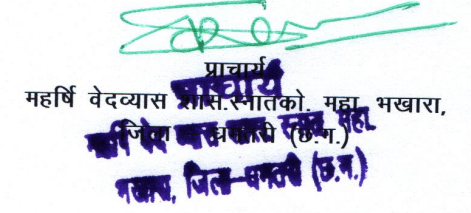 प्राचार्य
महर्षि वेदव्यास शास.स्नातको. महा. भखारा,
जिला धमतरी (छ.ग.)
प्राचार्य
महर्षि वेद व्यास शास. स्नात. महा.
भखारा, जिला-धमतरी (छ.ग.)